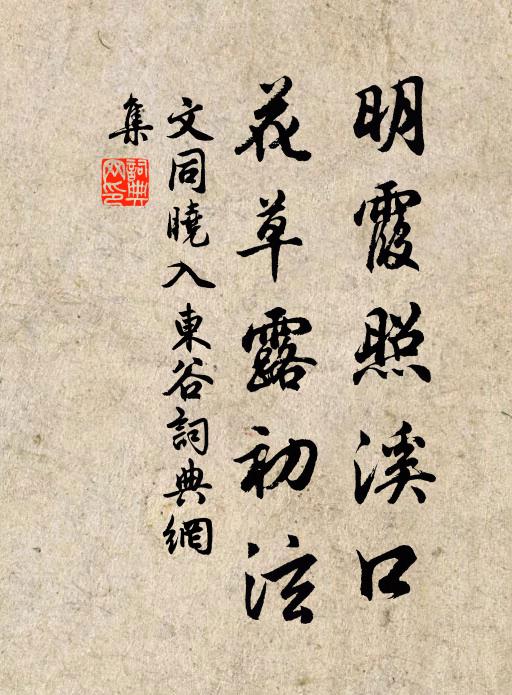 明霞照溪口
花草露初泫
文同曉入東谷詞典網
集
詞典
網印